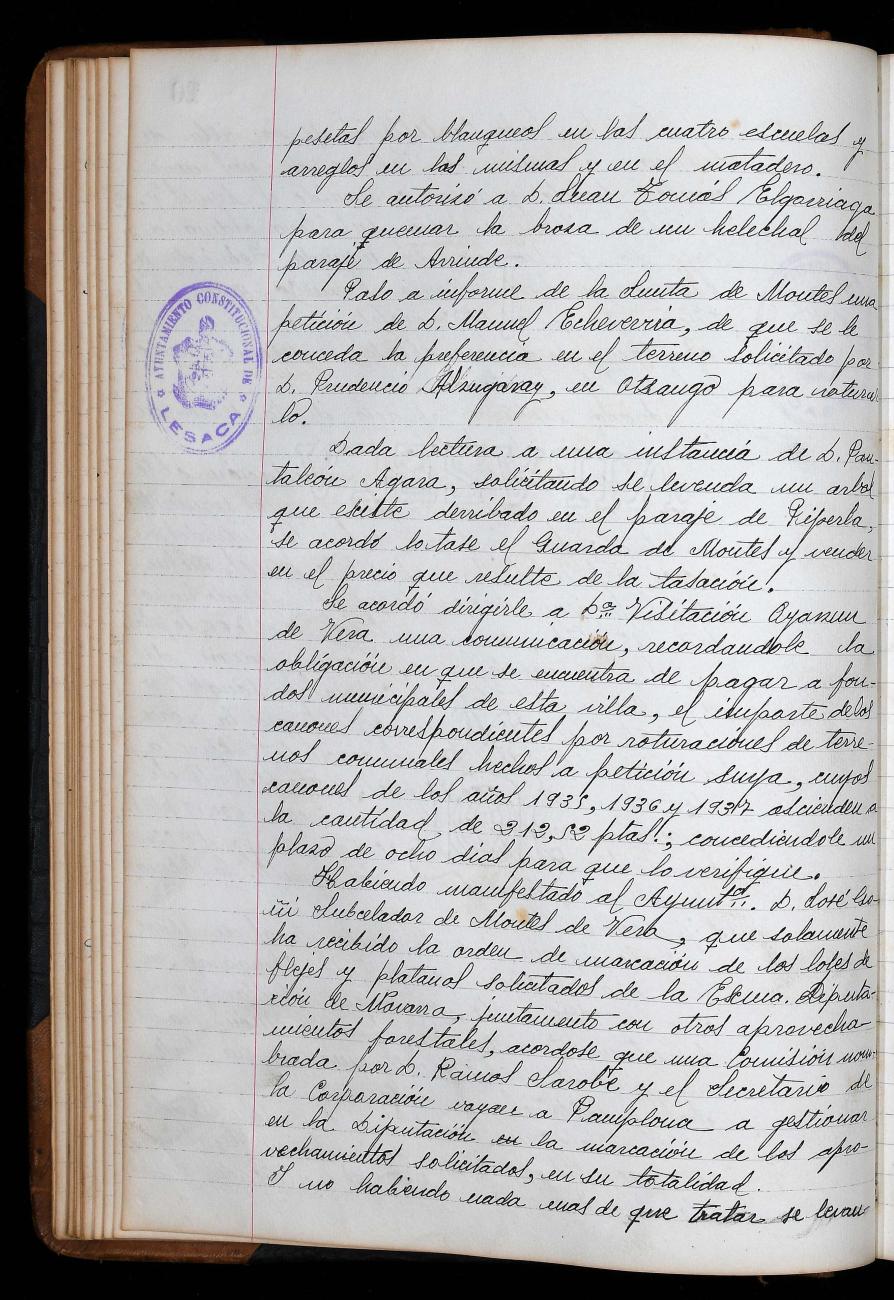 pesetas por blanqueos en las cuatro escuelas y
arreglos en las mismas y en el matadero.
Se autorizó a D. Juan Tomás Elgorriaga
para quemar la broza de un helechal del
paraje de Arrinde.
Paso a informe de la Junta de Montes una
petición de D. Manuel Echeverria, de que se le
conceda la preferencia en el terreno solicitado por
D. Prudencio Alzugaray, en Otsango para roturar
lo.
Dada lectura a una instancia de D. Pan-
taleón Agara, solicitando se le venda un arbol
que existe derribado en el paraje de
se acordó lo tase el Guarda de Montes y vender
en el precio que resulte de la tasación.
Se acordó dirigirle a Dª Visitación Oyarzun
de Vera una comunicación, recordandole la
obligación en que se encuentra de pagar a fon-
dos municipales de esta villa, el importe de los
canones correspondientes por roturaciones de terre-
nos comunales hechos a petición suya, cuyos
canones de los años 1935, 1936 y 1937 ascienden a
la cantidad de 212,52 ptas.; concediendole un
plazo de ocho dias para que lo verifique.
Habiendo manifestado al Ayuntº. D. José Go-
ñi Subcelador de Montes de Vera, que solamente
ha recibido la orden de marcación de los lotes de
flejes y platanos solicitados de la Excma. Diputa-
ción de Navarra, juntamento con otros aprovecha-
mientos forestales, acordose que una Comisión nom-
brada por D. Ramos Sarobe y el Secretario de
la Corporación vayan a Pamplona a gestionar
en la Diputación en la marcación de los apro-
vechamientos solicitados, en su totalidad.
Y no habiendo nada mas de que tratar se levan-
AYUNTAMIENTO CONSTITUCIONAL DE
LESACA